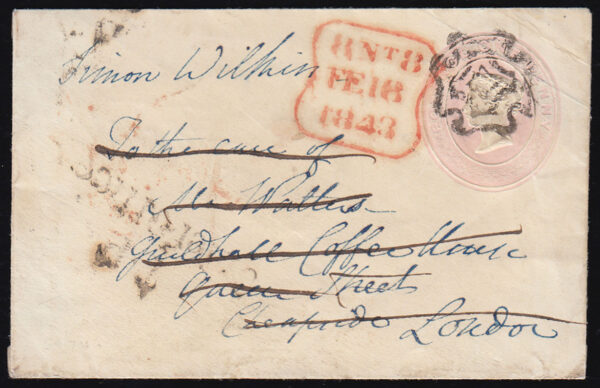 Simon Wilkin
8 NT 8
FE 18
1843
To the care of
Mr Walters
Guildhall Coffee House
Queen Street
Cheapside London